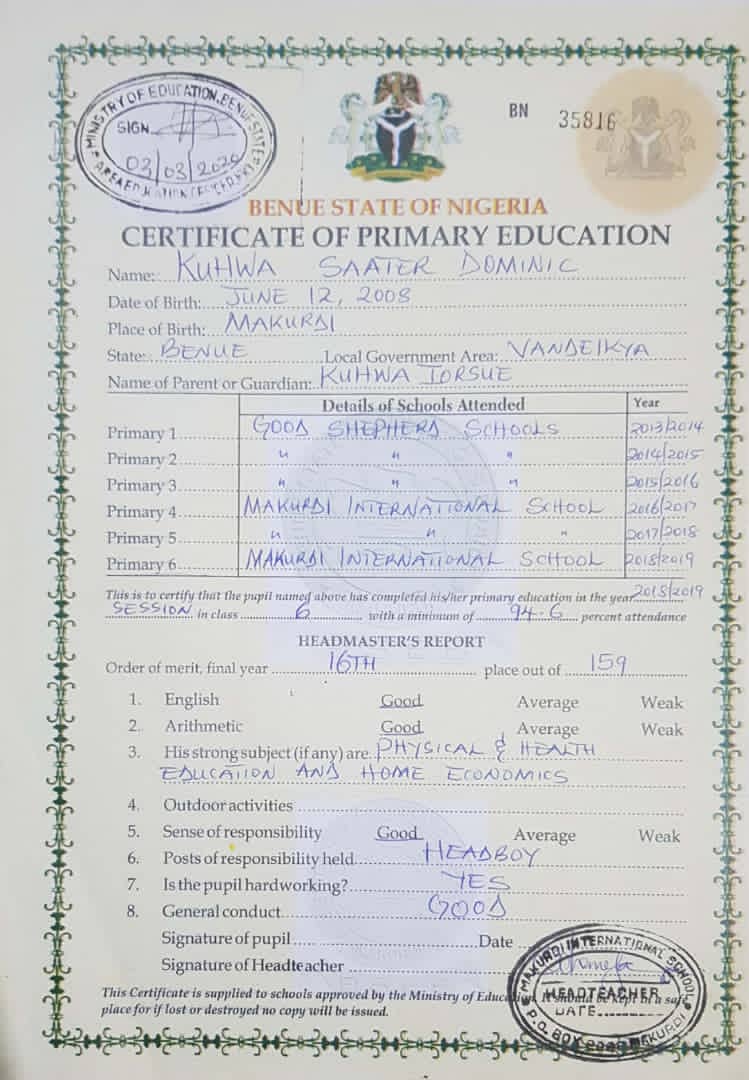 MINISTRY OF EDUCATION, BENUE STATE
SIGN
03/03/2020
BN 35816
BENUE STATE OF NIGERIA
CERTIFICATE OF PRIMARY EDUCATION
Name: KUHWA SAATER DOMINIC
Date of Birth: JUNE 12, 2008
Place of Birth: MAKURDI
State: BENUE Local Government Area: VANDEIKYA
Name of Parent or Guardian: KUHWA TORSUE
Details of Schools Attended Year
Primary 1 GOOD SHEPHERD SCHOOLS 2013/2014
Primary 2 " " " 2014/2015
Primary 3 " " " 2015/2016
Primary 4 MAKURDI INTERNATIONAL SCHOOL 2016/2017
Primary 5 " " " 2017/2018
Primary 6 MAKURDI INTERNATIONAL SCHOOL 2018/2019
This is to certify that the pupil named above has completed his/her primary education in the year 2018/2019
SESSION in class 6 with a minimum of 94.6 percent attendance
HEADMASTER'S REPORT
Order of merit, final year 16TH place out of 159
1. English Good Average Weak
2. Arithmetic Good Average Weak
3. His strong subject (if any) are PHYSICAL & HEALTH
EDUCATION AND HOME ECONOMICS
4. Outdoor activities
5. Sense of responsibility Good Average Weak
6. Posts of responsibility held HEADBOY
7. Is the pupil hardworking? YES
8. General conduct GOOD
Signature of pupil Date
Signature of Headteacher
This Certificate is supplied to schools approved by the Ministry of Education. It should be kept in a safe
place for if lost or destroyed no copy will be issued.
MAKURDI INTERNATIONAL SCHOOL
HEADTEACHER
DATE
P.O. BOX MAKURDI